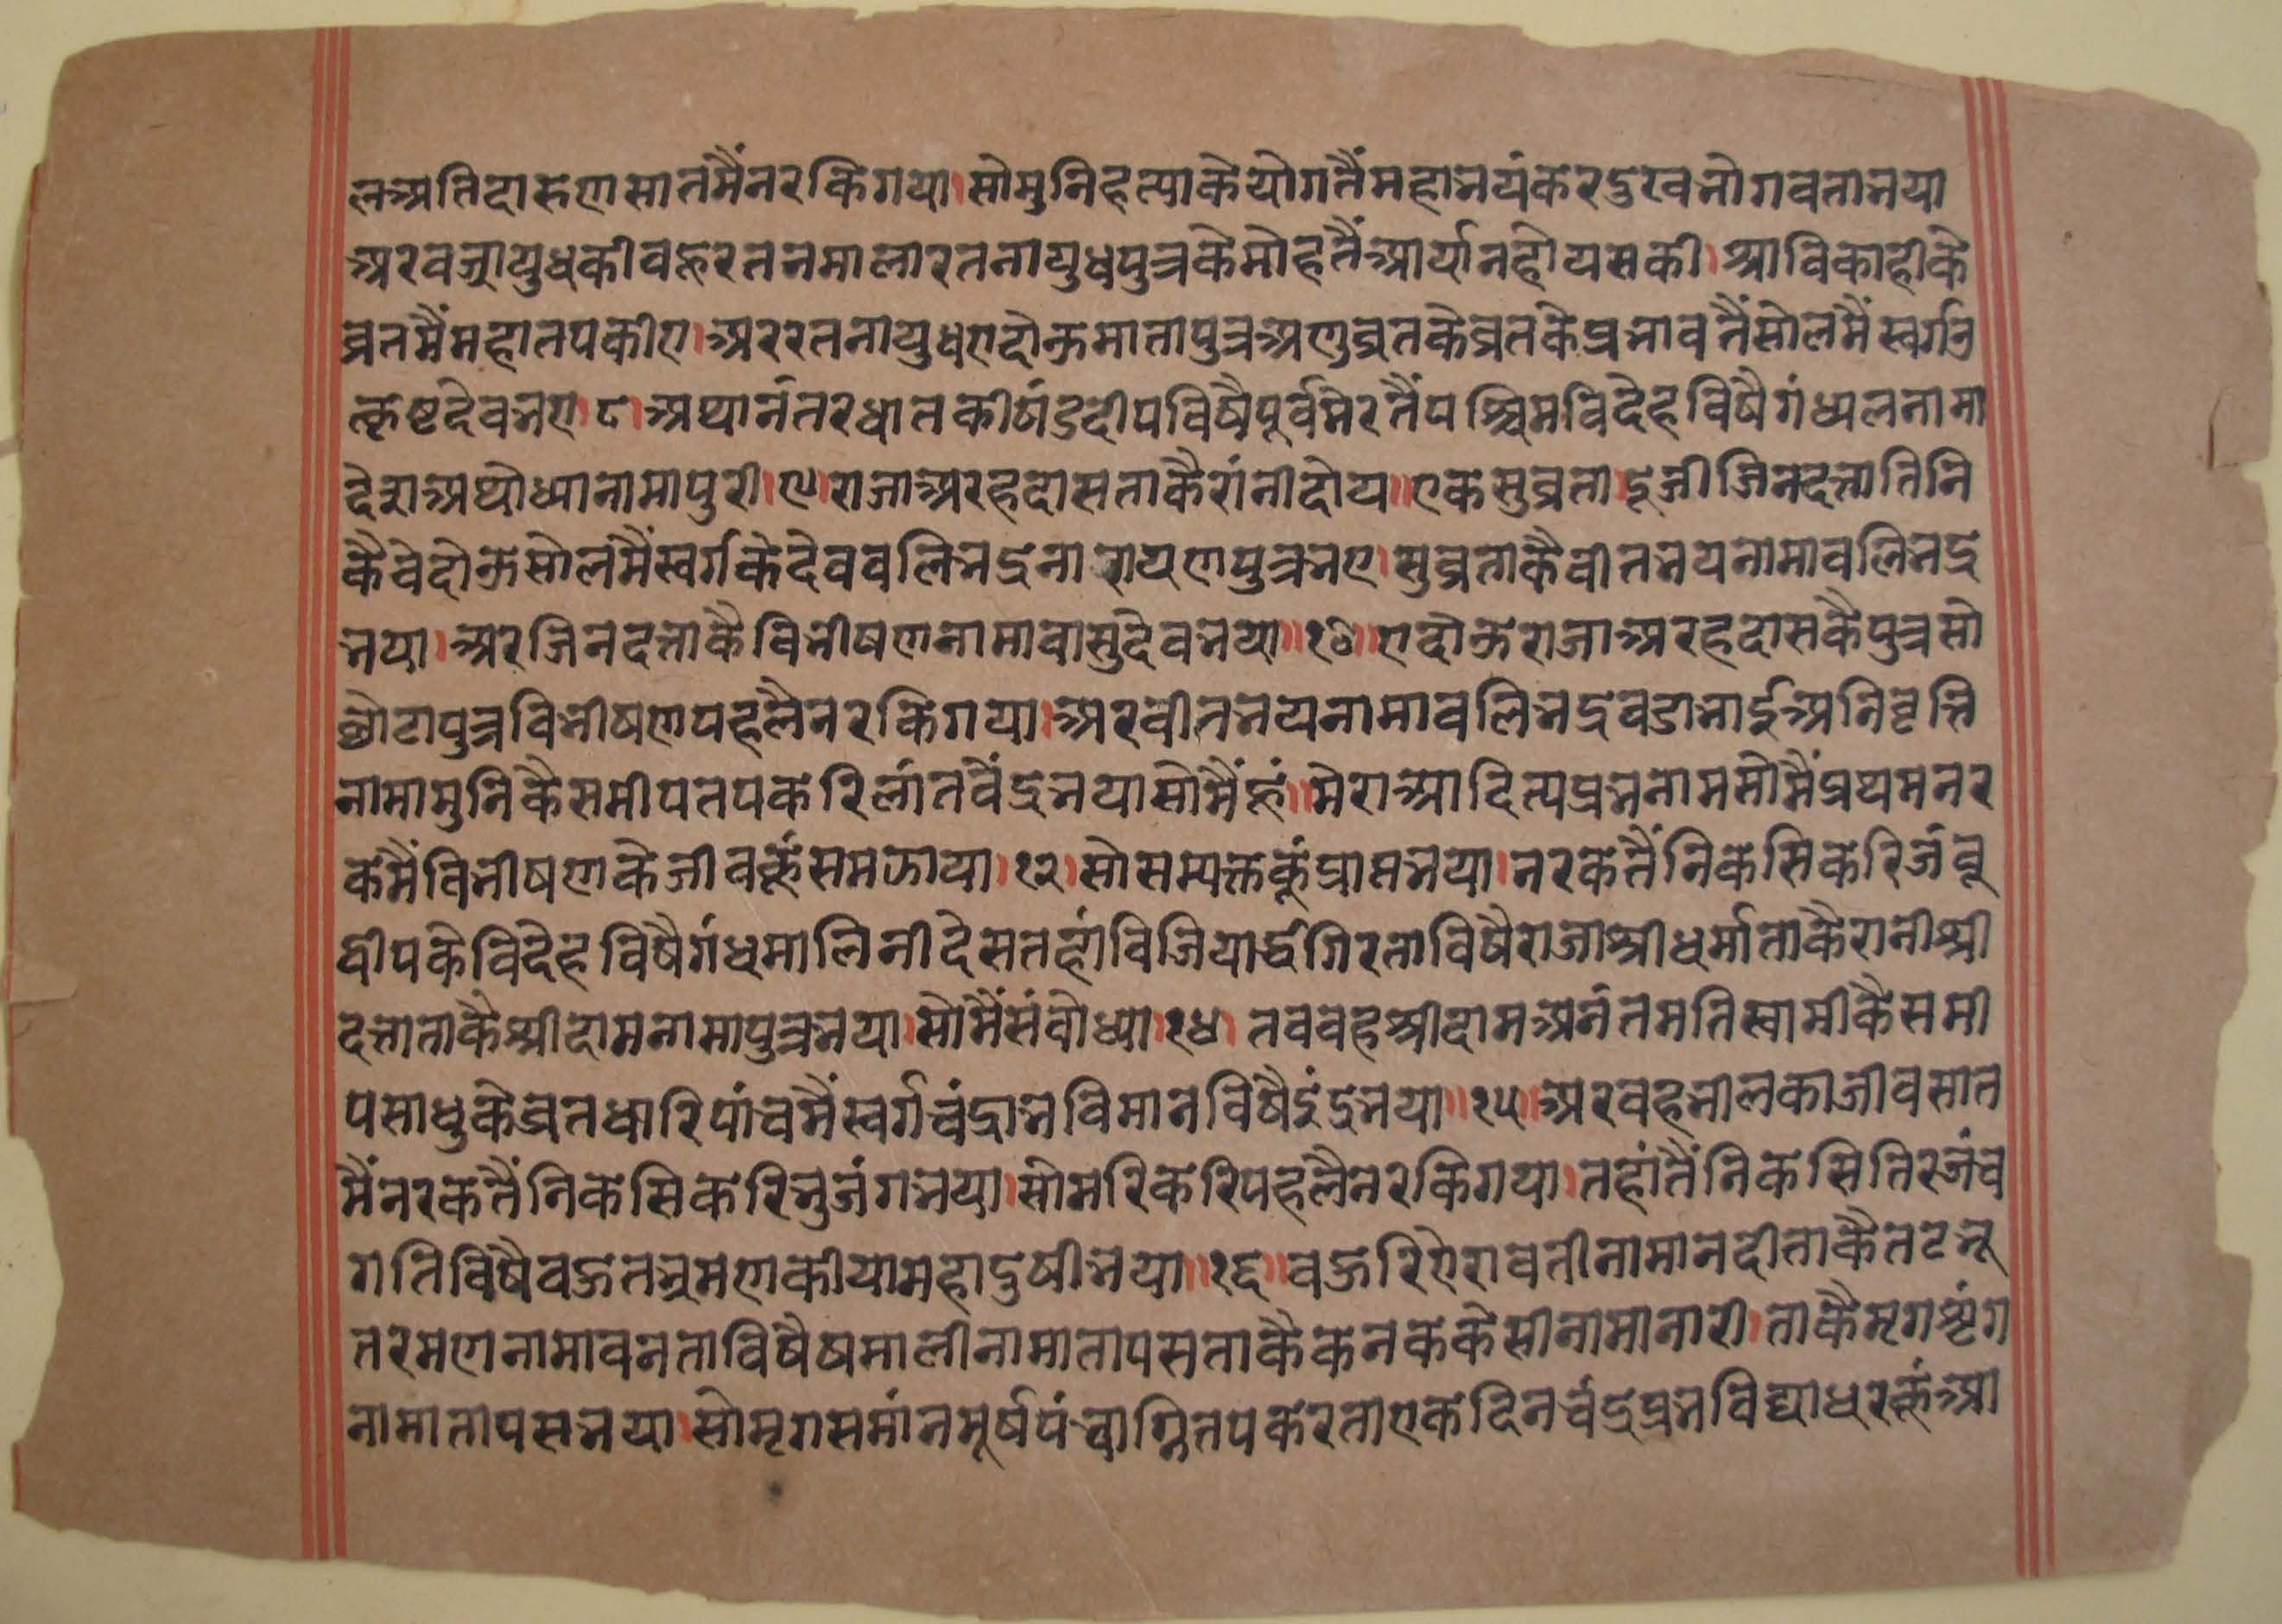 लअतिदारुणसातमैंनरकिगया।सोमुनिहत्याकेयोगतैंमहाभयंकरदुखभोगवताभया
अरवज्रायुधकीवहूरतनमालारतनायुधपुत्रकेमोहतैंआर्यानहोयसकी।श्राविकाहीके
व्रतमैंमहातपकीए।अररतनायुधएदोऊमातापुत्रअणुव्रतकेव्रतकेप्रभावतैंसोलमैंस्वर्गउ
त्कृष्टदेवभए।८।अथानंतरधातकीषंडदीपविषैपूर्वमेरतैंपश्चिमविदेहविषैगंध्यलनामा
देशअयोध्यानामापुरी।९।राजाअरहदासताकैरांनीदोय॥एकसुव्रता।दूजीजिनदत्तातिनि
कैवेदोऊसोलमैंस्वर्गकेदेवबलिभद्रनारायणपुत्रभए।सुव्रताकैवीतभयनामाबलिभद्र
भया।अरजिनदत्ताकैविभीषणनामावासुदेवभया॥१०॥एदोऊराजाअरहदासकैपुत्रसो
छोटापुत्रविभीषणपहलैनरकिगया।अरवीतभयनामाबलिभद्रवडाभाईअनिवृत्ति
नामामुनिकैसमीपतपकरिलांतवेंद्रभयासोमैंहूं॥मेराआदित्यप्रभनामसोमैंप्रथमनर
कमैंविभीषणकेजीवकूंसमझाया।१२।सोसम्यक्तकूंप्राप्तभया।नरकतैंनिकसिकरिजंबू
द्वीपकेविदेहविषैगंधमालिनीदेसतहांविजियार्द्धगिरताविषैराजाश्रीधर्माताकैरानीश्री
दत्ताताकैश्रीदामनामापुत्रभया।सोमैंसंबोध्या।१४।तबवहश्रीदामअनंतमतिस्वामीकैसमी
पसाधुकेव्रतधारिपांचमैंस्वर्गचंद्राभविमानविषैइंद्रभया॥१५॥अरवहभीलकाजीवसात
मैंनरकतैंनिकसिकरिभुजंगभया।सोमरिकरिपहलैनरकिगया।तहांतैंनिकसितिरजंच
गतिविषैबऊतभ्रमणकीयामहादुषीभया॥१६॥बऊरिऐरावतीनामानदीताकैतटभू
तरमणनामावनताविषैषमालीनामातापसताकैकनककेसीनामानारी।ताकैमृगशृंग
नामातापसभया।सोमृगसमांनमूर्षपंचाग्नितपकरताएकदिनचंद्रप्रभविद्याधरकूंआ